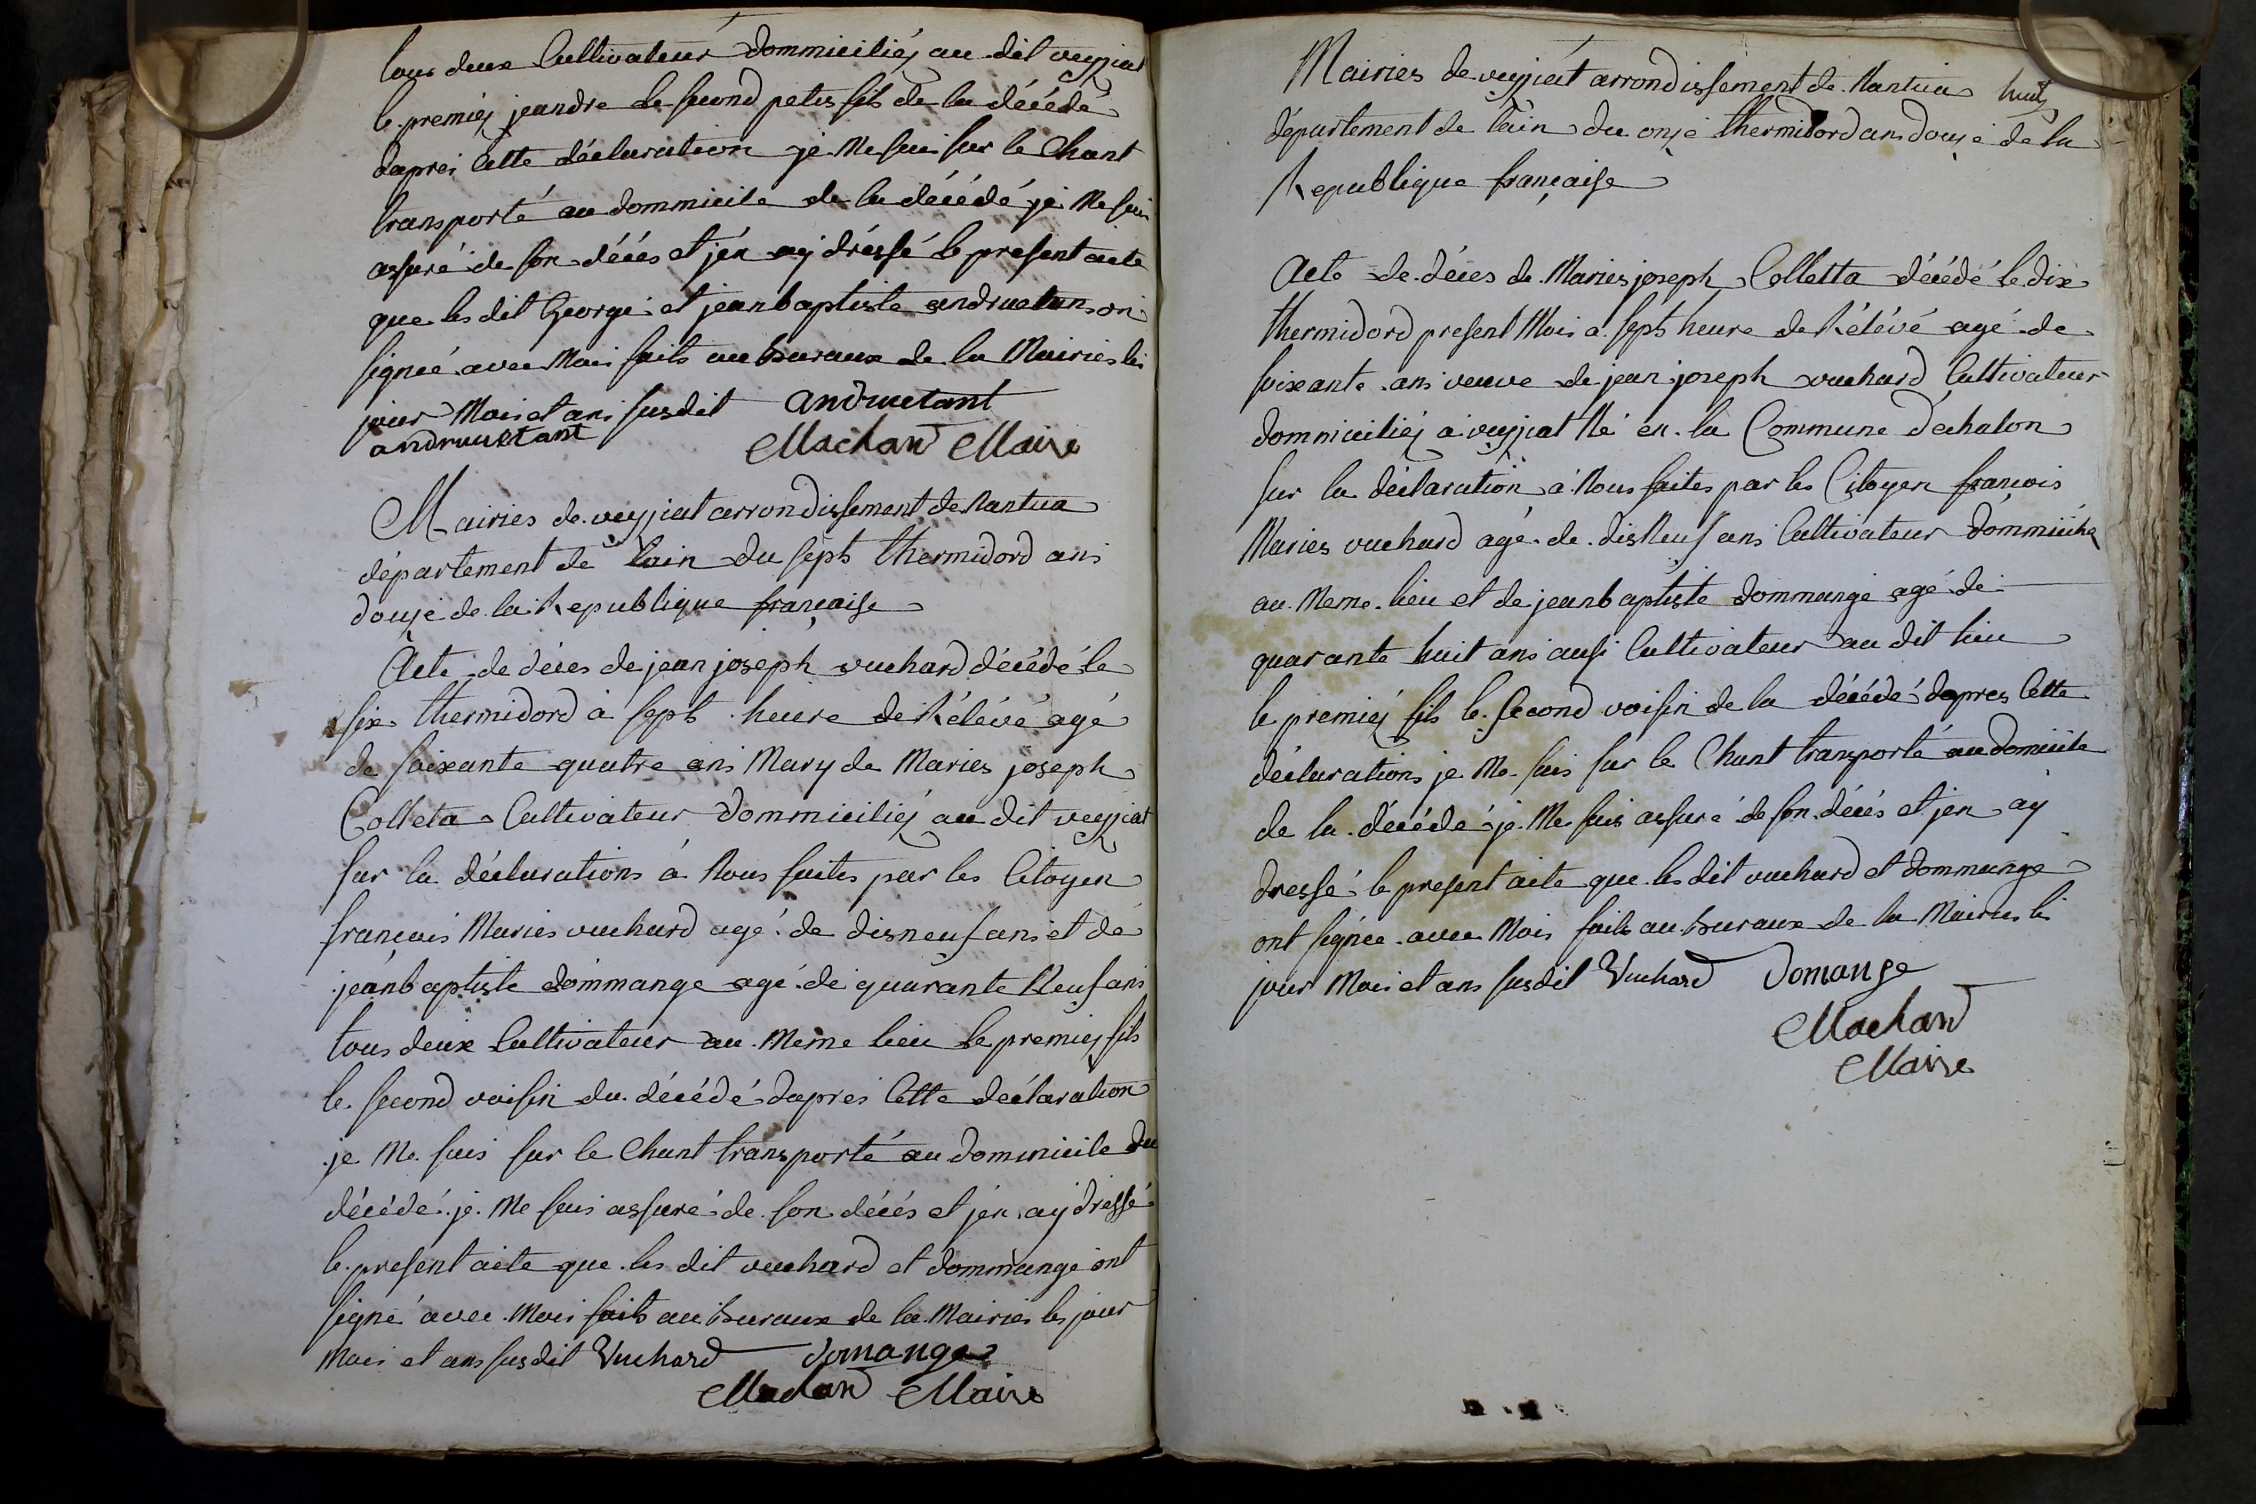 tous deux Cultivateur dommiciliéz au dit veyziat
le premiéz jeandre le second petis fils de la décédé
daprei Cette déclaration je Me suis sur le Chant
transporté au dommicile de la décédé je Me suis
assuré de son décés et jén ay dréssé le present acte
que les dit George et jeanbaptiste andruetan on
signéé avec Moi faits au buraux de la Mairies les
jour Mois et ans susdit andruetant
andruettant Machard Maire
Mairies de veyziat arrondissement de Nantua
département de lain du sept thermidord ans
douze de la Republique française
Acte de déces de jean joseph vuchard décédé le
six thermidord à sept heure de Rélévé agé
de soixante quatre ans Mary de Maries joseph
Colleta Cultivateur dommiciliéz au dit veyziat
sur la déclarations á Nous faites par les Citoyen
francois Maries vuchard agé de disneuf ans et de
jeánbaptiste dommange agé de quarante Neuf ans
tous deux Cultivateur au Meme lieu le premiéz fils
le second voisin du décédé daprei Cette déclaration
je Me suis sur le Chant transporté au dommicile du
décédé je Me suis assuré de son décés et jén ay dressé
le present acte que les dit vuchard et dommange ont
signé avec Moi faits au buraux de la Mairies les jour
Mois et ans susdit Vuchard domange
Machard Maire
huit
Mairies de veyziat arrondissement de Nantua
département de lain du onze thermidord ans douze de la
Republique française
Acte de déces de Maries joseph Colletta décédé le dix
thermidord present Mois a sept heure de Rélévé agé de
soixante ans veuve de jean joseph vuchard Cultivateur
domniciliéz á veyziat Né en la Commune déchalon
sur la déclaration á Nous faites par les Citoyen francois
Maries vuchard agé de disNeuf ans Cultivateur dommicilié
au Meme lieu et de jeanbaptiste dommange agé de
quarante huit ans ausi Cultivateur au dit lieu
le premiéz fils le second voisin de la décédé dapres Cette
déclarations je Me suis sur le Chant transporté au domicile
de la décédé je Me suis assuré de son décés et jen ay
dressé le present acte que les dit vuchard et dommange
ont signée avec Mois faits au buraux de la Mairies les
jour Mois et ans susdit Vuchard domange
Machard
Maire